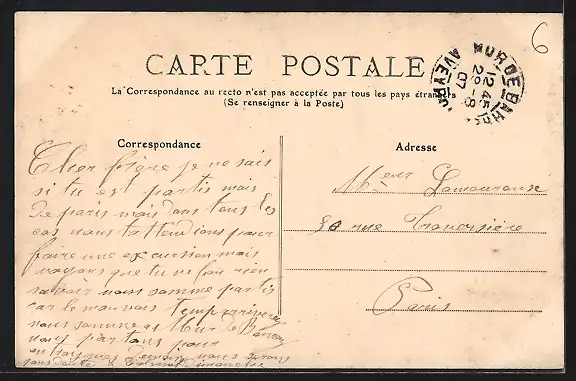 6
CARTE POSTALE
MUR DE BARREZ
AVEYRON
12 45
28 -8
07
La Correspondance au recto n'est pas acceptée par tous les pays étrangers
(Se renseigner à la Poste)
Correspondance
Adresse
Cher frère je ne sais
si tu est partis mais
de paris mais dans tous les
cas nous t'attendions pour
faire une excursion mais
voyons que tu ne fais rien
savoir nous somme partis
car le mauvais temp arrivera
nous somme a Mur de Barrez
nous partons pour
demain nous serons
sans doute a
Mr Lamouroux
80 rue Traversière
Paris